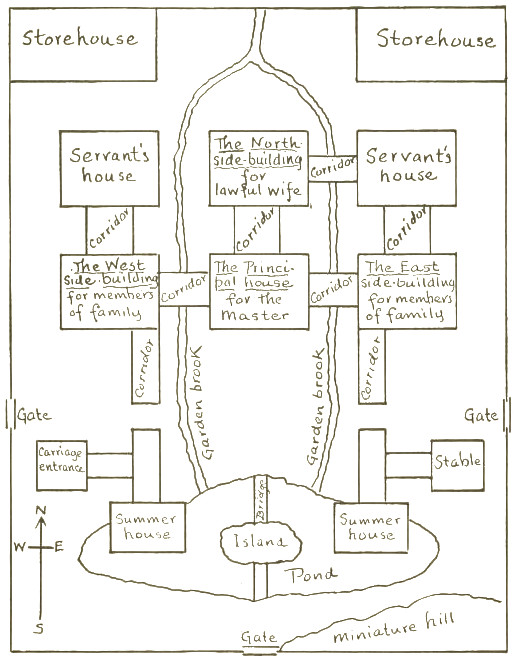 Storehouse
Storehouse
Servant's
house
The North-
side-building
for
lawful wife
Corridor
Servant's
house
Corridor
Corridor
Corridor
The West
side-building
for members
of family
Corridor
The Princi-
pal house
for the
Master
Corridor
The East
side-building
for members
of family
Corridor
Garden brook
Garden brook
Corridor
Gate
Gate
Carriage
entrance
Stable
Summer
house
Bridge
Summer
house
Island
Pond
N
W
E
S
Gate
miniature hill